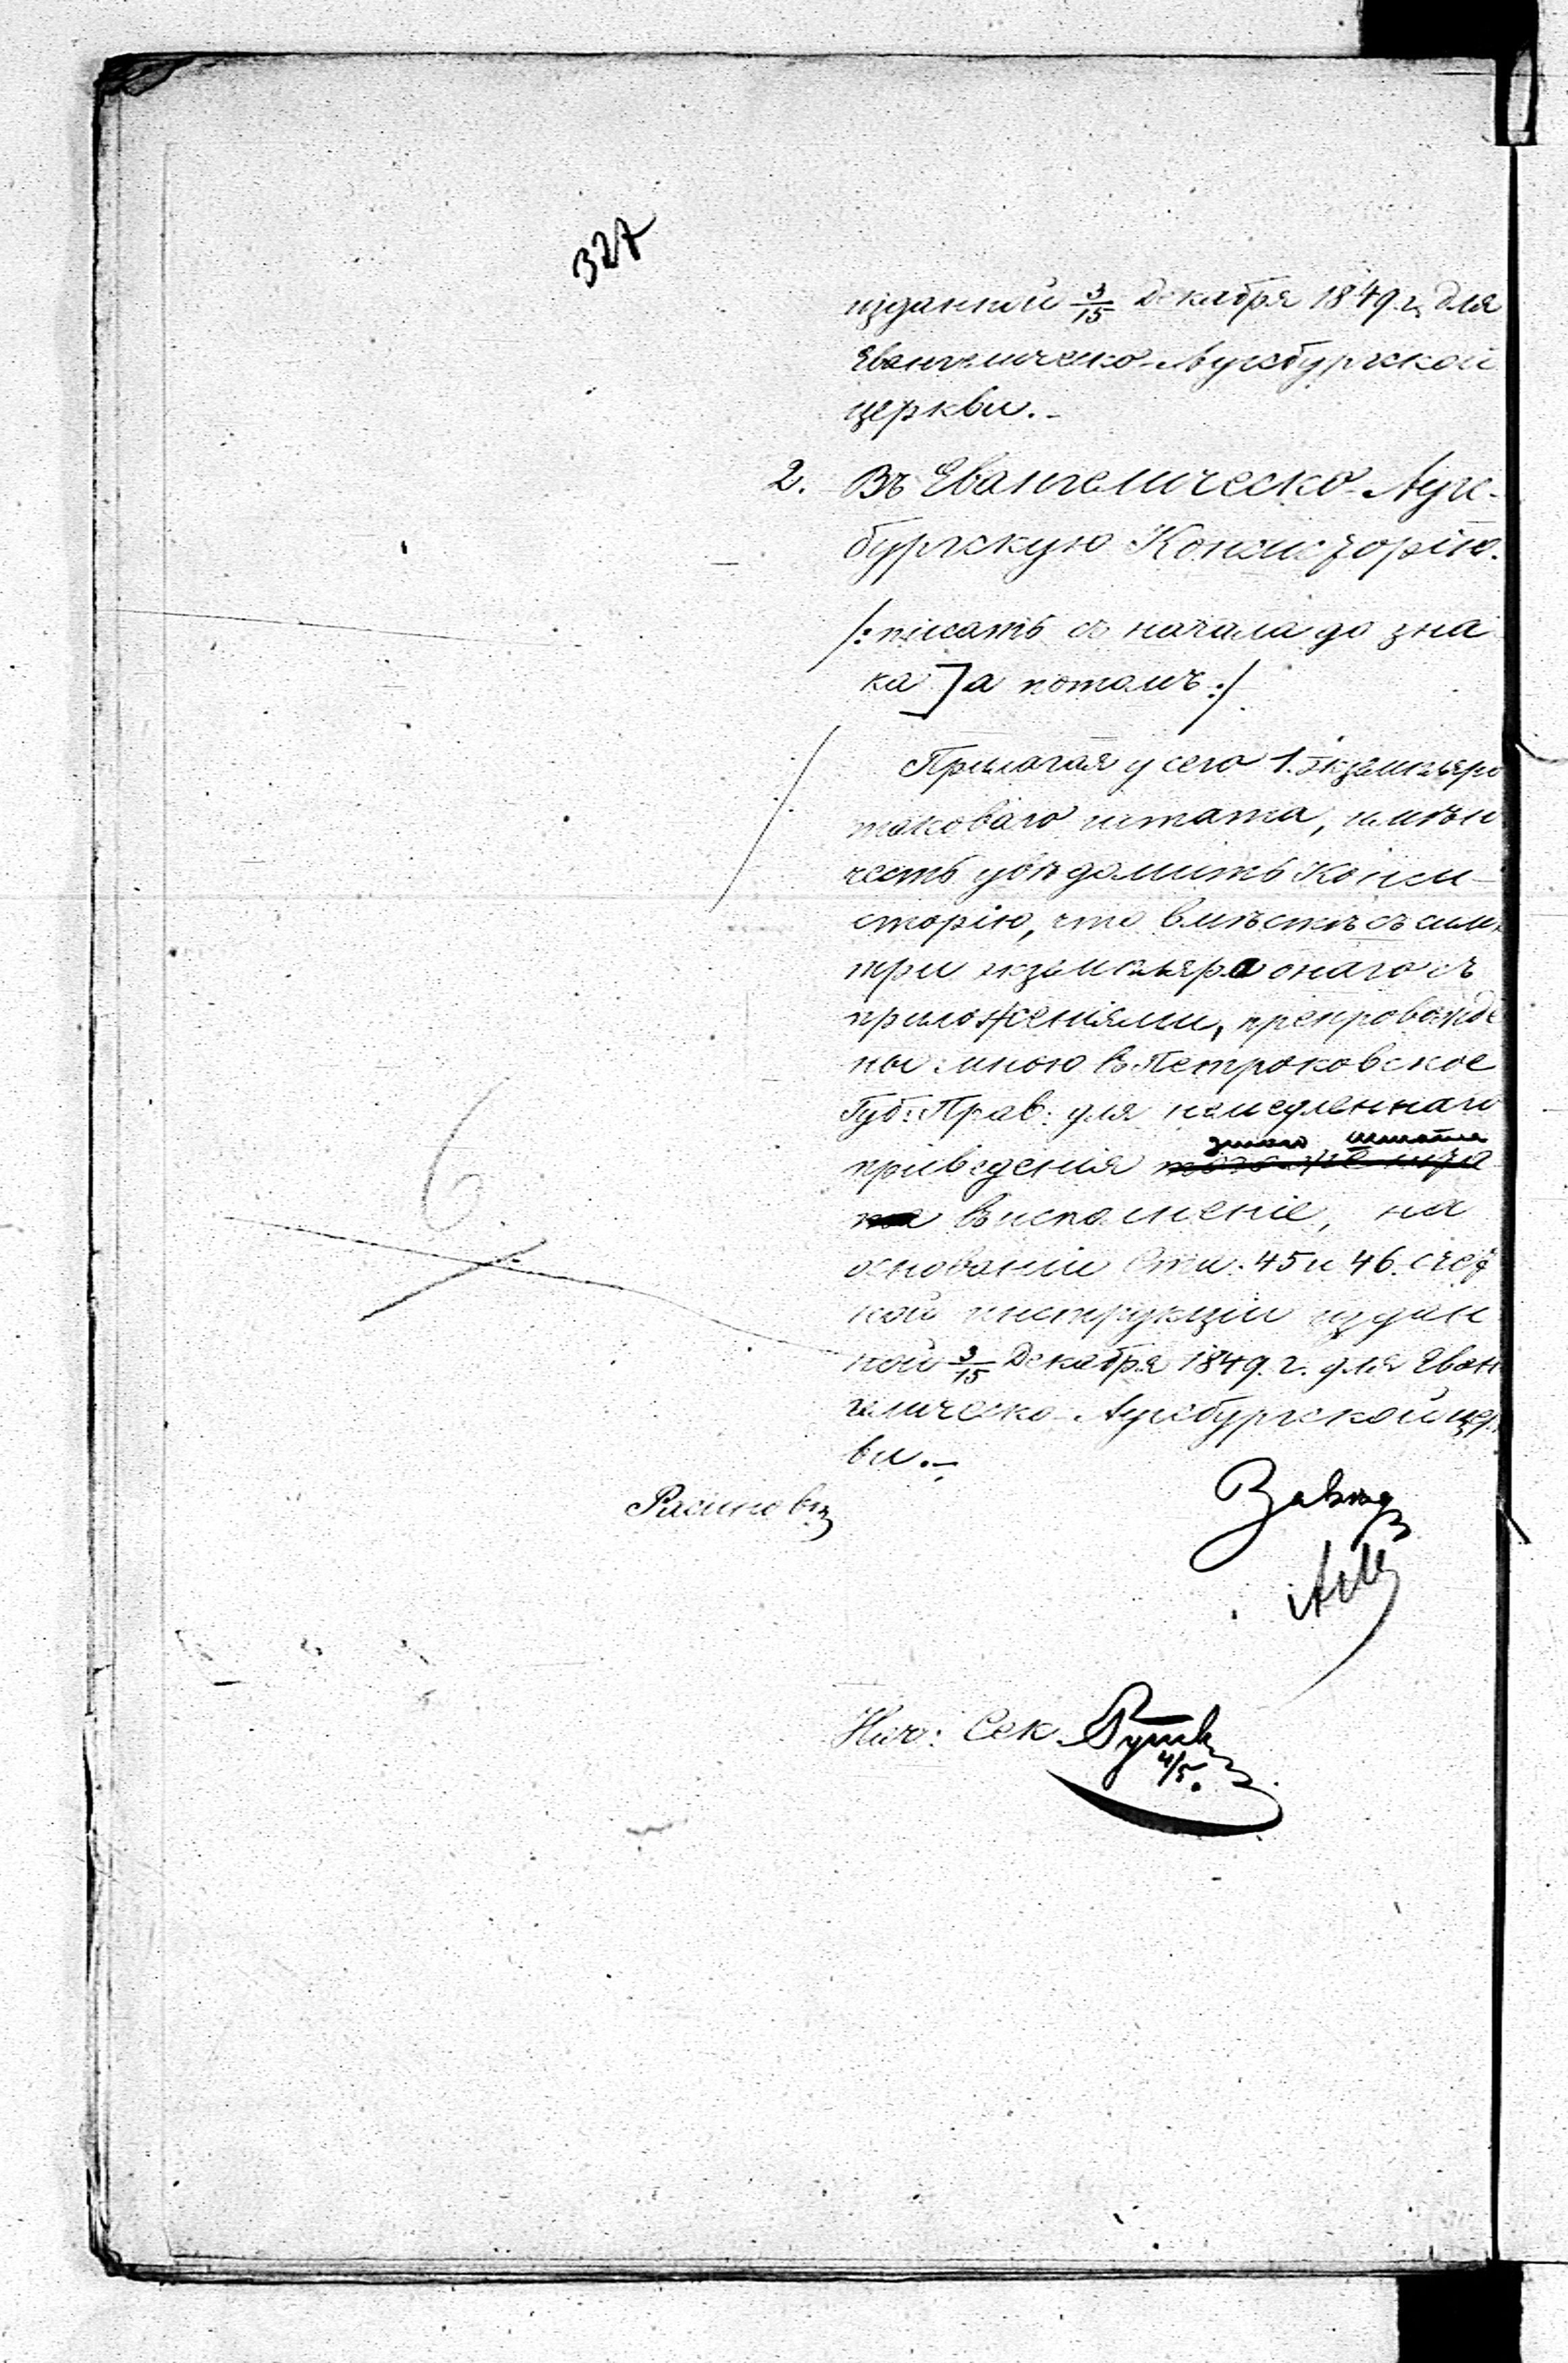 327
изданной 3/15 Декабря 1849 г. для
Евангелическо-Аугсбургской
церкви.-
2. Въ Евангелическо-Аугс-
бургскую Консисторію.
/:писать съ начала до зна
ка ] а потомъ:/
Прилагая у сего 1. экземпляръ
таковаго штата, имѣю
честь увѣдомить Конси-
сторію, что вмѣстѣ съ симъ
три экземпляра онаго съ
приложеніями, препровожде
ны мною въ Петроковское
Губ: Прав: для немедленнаго
этого штата
приведенія
въ исполненіе, на
основаніи Ста. 45 и 46. счет
ной инструкціи издан
ной 3/15 Декабря 1849. г. для Еван
гелическо-Аугсбургской цер
ви.-
6
Нач: Сек.
4/5.